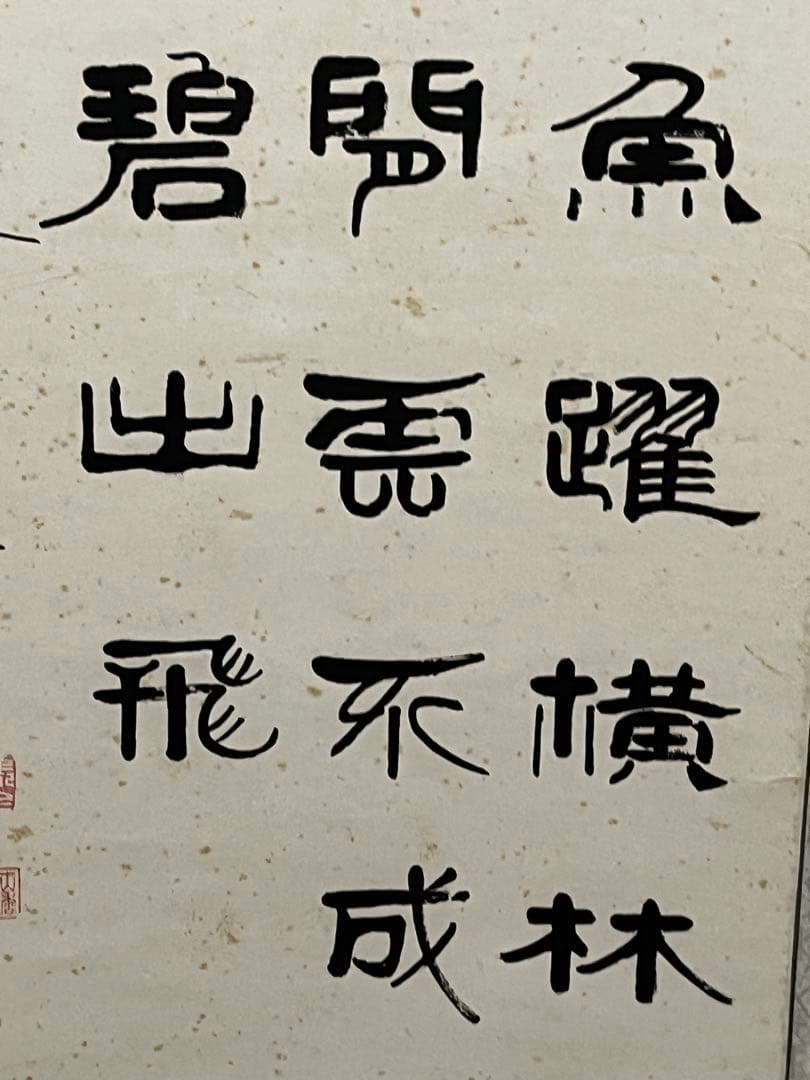 魚躍橫林
閒雲不成
碧山飛